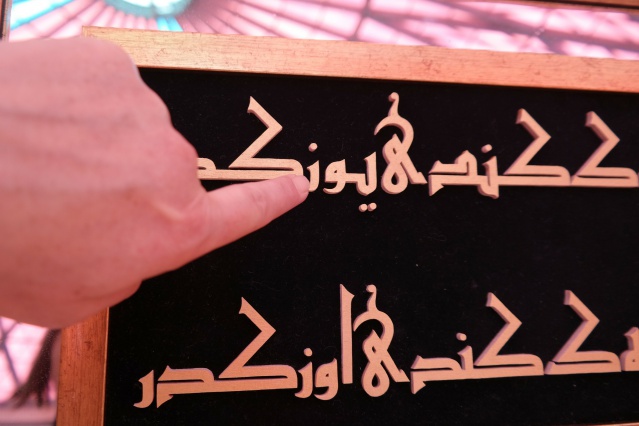 كندى يوزكد
كندى اوزكدر